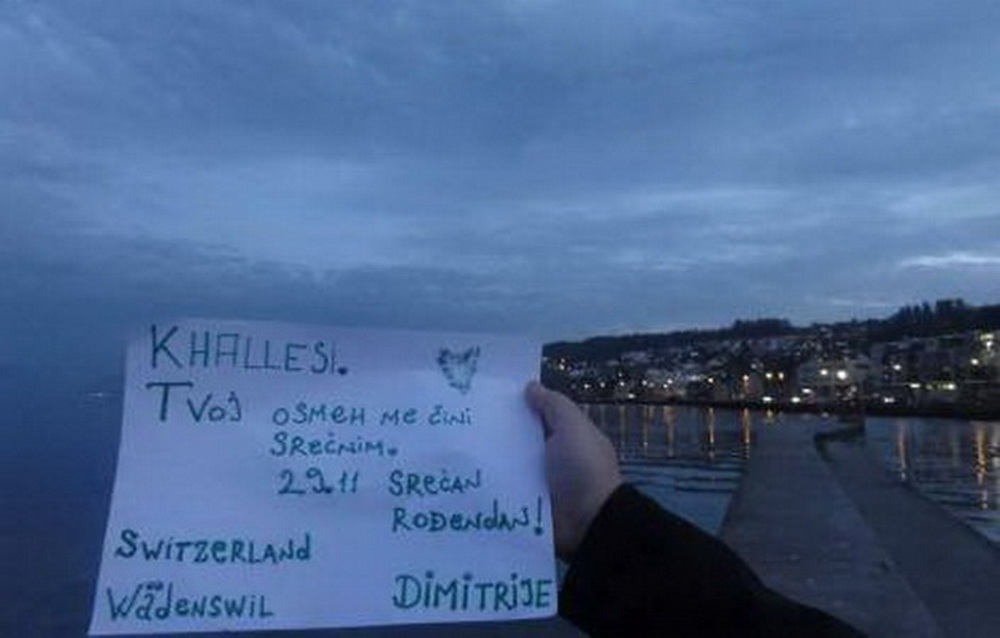 KHALLESI.
TVOJ OSMEH ME ČINI
SREĆNIM.
29.11 SREĆAN
ROĐENDAN!
SWITZERLAND
WÄDENSWIL
DIMITRIJE